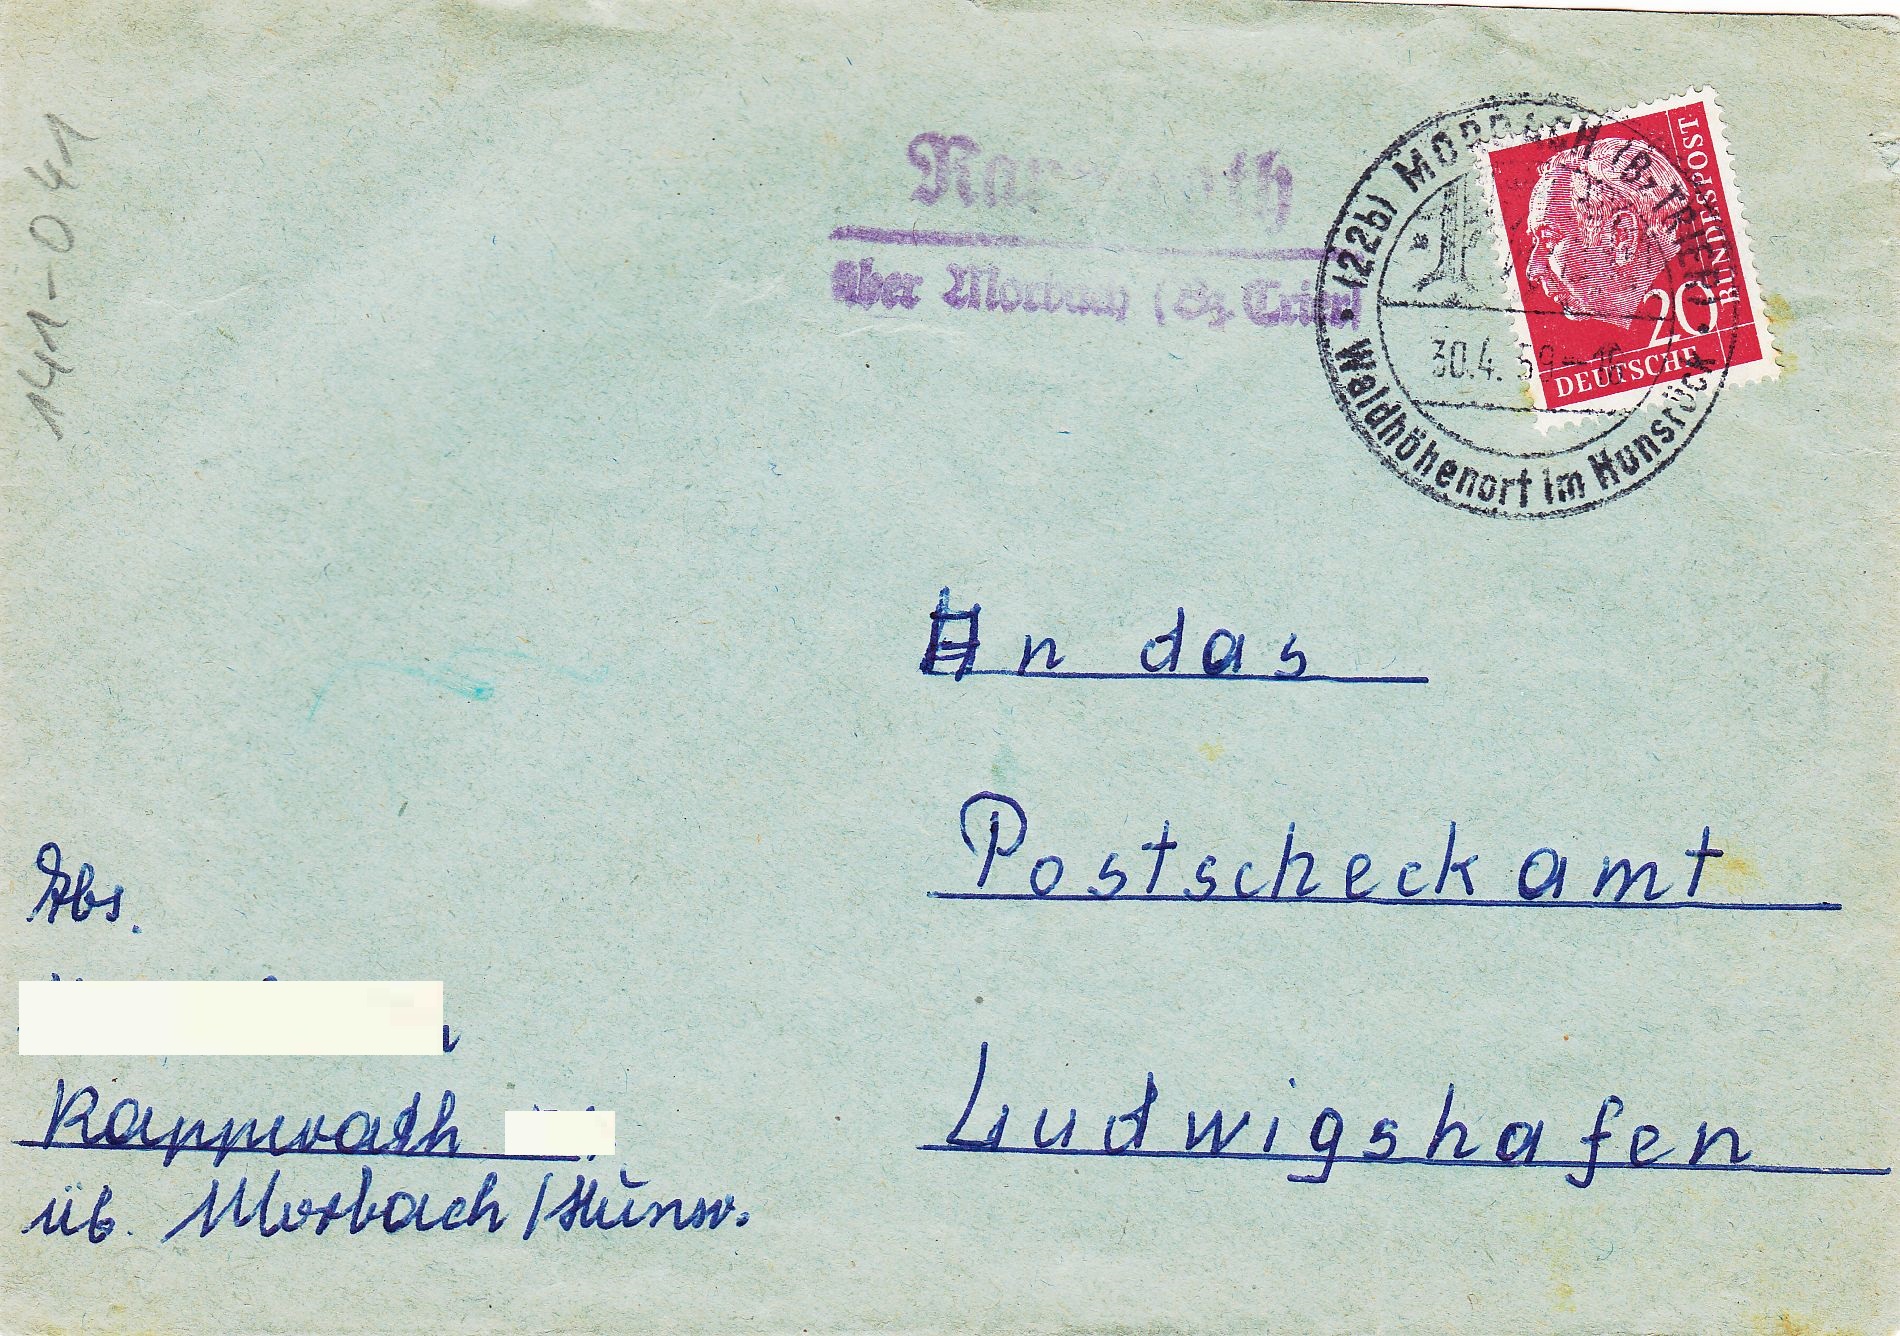 141-041
über Morbach (Bz. Trier)
(22b) MORBACH (BZ. TRIER)
30.4.59-16
Waldhöhenort im Hunsrück
20
DEUTSCHE BUNDESPOST
An das
Postscheckamt
Ludwigshafen
Abs.
Rapperath
üb. Morbach/Hunsr.